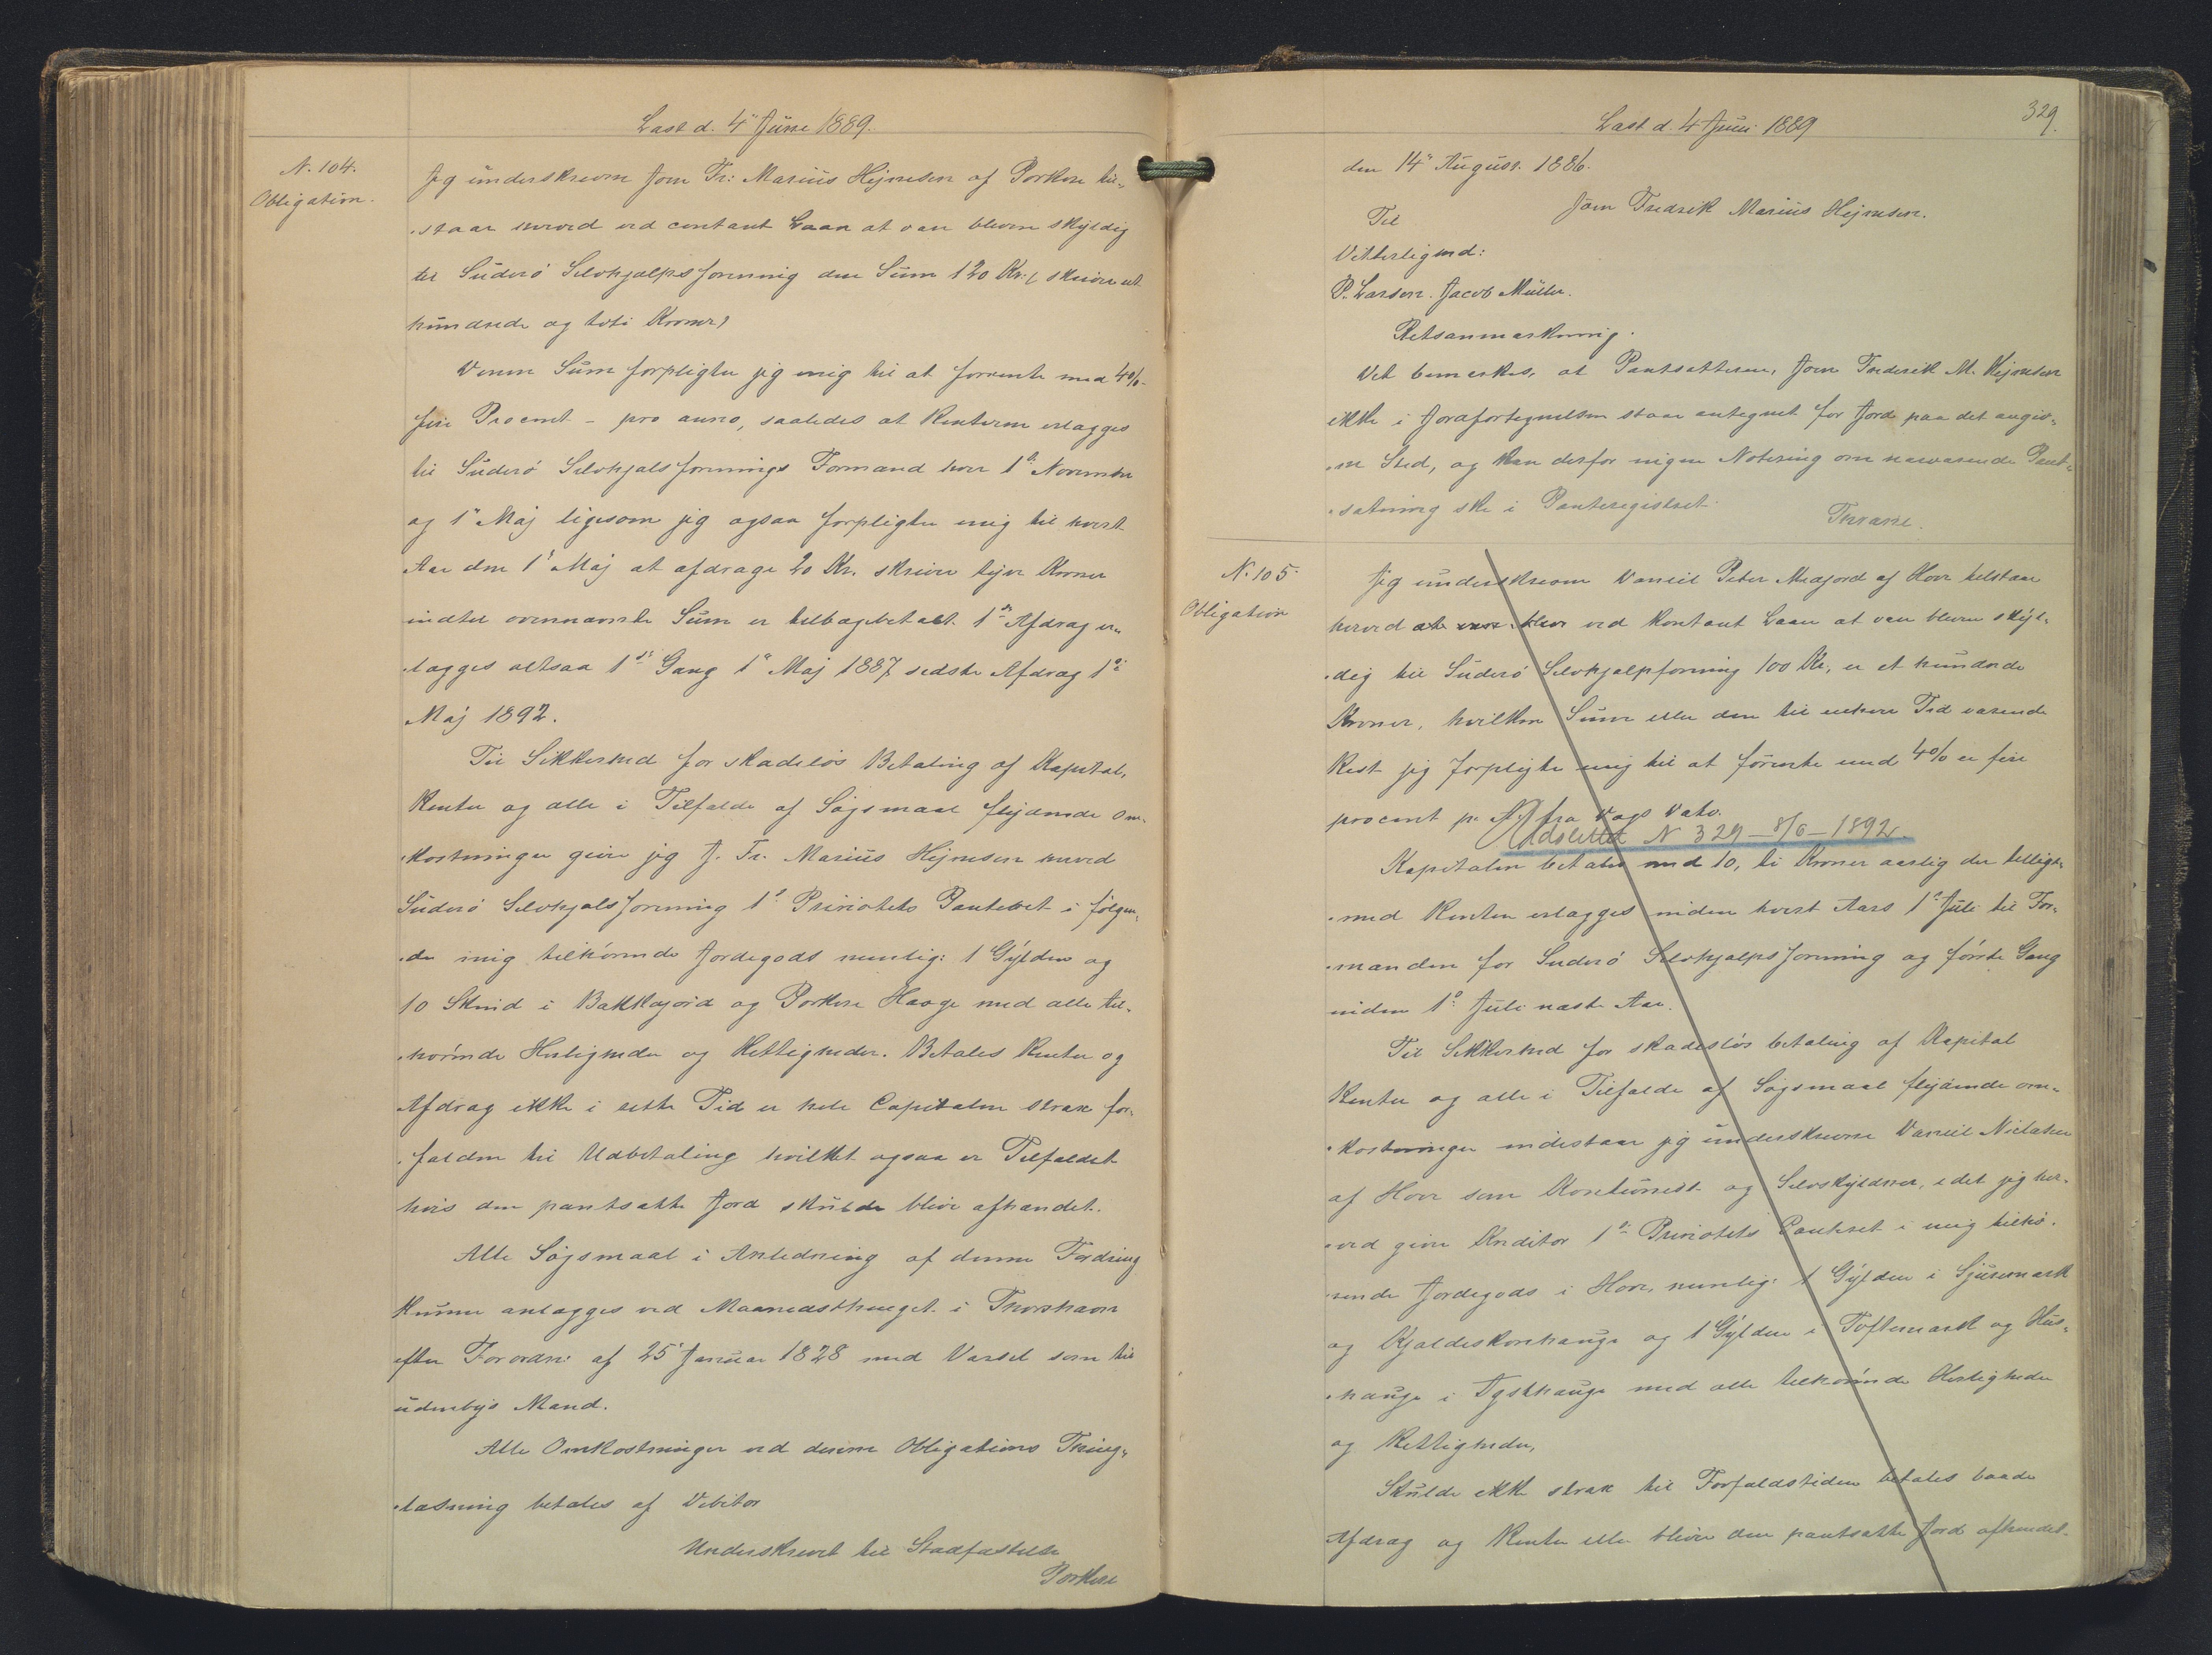 Læst d. 4' June 1889.
N. 104.
Obligation.
Jeg underskrevne Joen Fr: Marius Hejnesen af Porkere til-
staar herved ved contant Laan at være bleven skyldig
til Suderö Selvhjælpsforening den Sum 120 Kr. ( skriver et
hundrede og tivi Kroner)
Denne Sum forpligter jeg mig til at forrente med 4%
fire Procent - pro anno, saaledes at Renterne erlægges
til Suderö Selvhjælsforenings Formand hver 1' November
og 1' Maj ligesom jeg ogsaa forpligter mig til hvert
Aar den 1' Maj at afdrage 20 Kr. skriver tyve Kroner
indtil ovennævnte Sum er tilbagebetalt. 1ste Afdrag er-
lægges altsaa 1ste Gang 1' Maj 1887 sidste Afdrag 1'
Maj 1892.
Til Sikkerhed for skadeslös Betaling af Kapital,
Renter og alle i Tilfælde af Sögsmaal flydende Om-
kostninger giver jeg J. Fr. Marius Hejnesen herved
Suderö Selvhjælsforening 1' Prioriotets Panteret i fölgen-
de mig tilhörende Jordegods nemlig: 1 Gylden og
10 Skind i Bakkagjord og Porkere Hauge med alle til-
hörende Herligheder og Rettigheder. Betales Renter og
Afdrag ikke i rette Tid er hele Capitalen strax for-
falden til Udbetaling hvilket ogsaa er Tilfældet
hvis den pantsatte Jord skulde blive afhændet.
Alle Sögsmaal i Anledning af denne Fordring
kunne anlægges ved Maanedsthinget i Thorshavn
efter Forordn: af 25' Januar 1828 med Varsel som til
udenbys Mand.
Alle Omkostninger ved denne Obligations Thing-
læsning betales af Debitor
Underskrevet til Stadfæstelse
Porkere
Læst d. 4 Juni 1889
329.
den 14' August. 1886.
Joen Fredrik Marius Hejnesen.
Til
Vitterlighed:
P. Larsen. Jacob Müller.
Retsanmærkning.
Det bemærkes, at Pantsætteren, Joen Frederik M. Hejnesen
ikke i Jordfortegnelsen staar antegnet for Jord paa det angiv-
ne Sted, og kan derfor ingen Notering om nærværende Pant-
sætning ske i Panteregistret.
Thrane.
N. 105.
Obligation
Jeg underskrevne Daniel Peter Midjord af Hove tilstaar
herved at være blev ved Kontant Laan at være bleven skyl-
dig til Suderö Selvhjælpforening 100 Kr, er et hundrede
Kroner, hvilken Sum eller den til enhver Tid værende
Rest jeg forpligter mig til at forrente med 4% er fire
procent p. A. fra Dags Dato.
Udslettet N 329 - 8/6 - 1892.
Kapitalen betales med 10, ti Kroner aarlig der tillige-
med Renten erlægges inden hvert Aars 1' Juli til For-
manden for Suderö Selvhjælpsforening og förste Gang
inden 1' Juli næste Aar.
Til Sikkerhed for skadeslös betaling af Kapital
Renter og alle i Tilfælde af Sögsmaal flydende om-
kostninger indestaar jeg underskrevne Daniel Nielsen
af Hove som Kautionist og Selvskyldner, idet jeg her-
ved giver Kreditor 1' Prioriotets Panteret i mig tilhö-
rende Jordegods i Hove, nemlig: 1 Gylden i Sjuremark
og Kjældeskorehauge og 1 Gylden i Toftemark og Hus-
hauge i Ygsthauge med alle tilhörende Herligheder
og Rettigheder,
Skulde ikke strax til Forfaldstiden betales baade
Afdrag og Renter eller bliver den pantsatte Jord afhændet